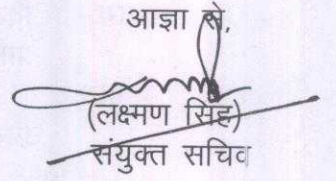 आज्ञा से,
(लक्ष्मण सिंह)
संयुक्त सचिव